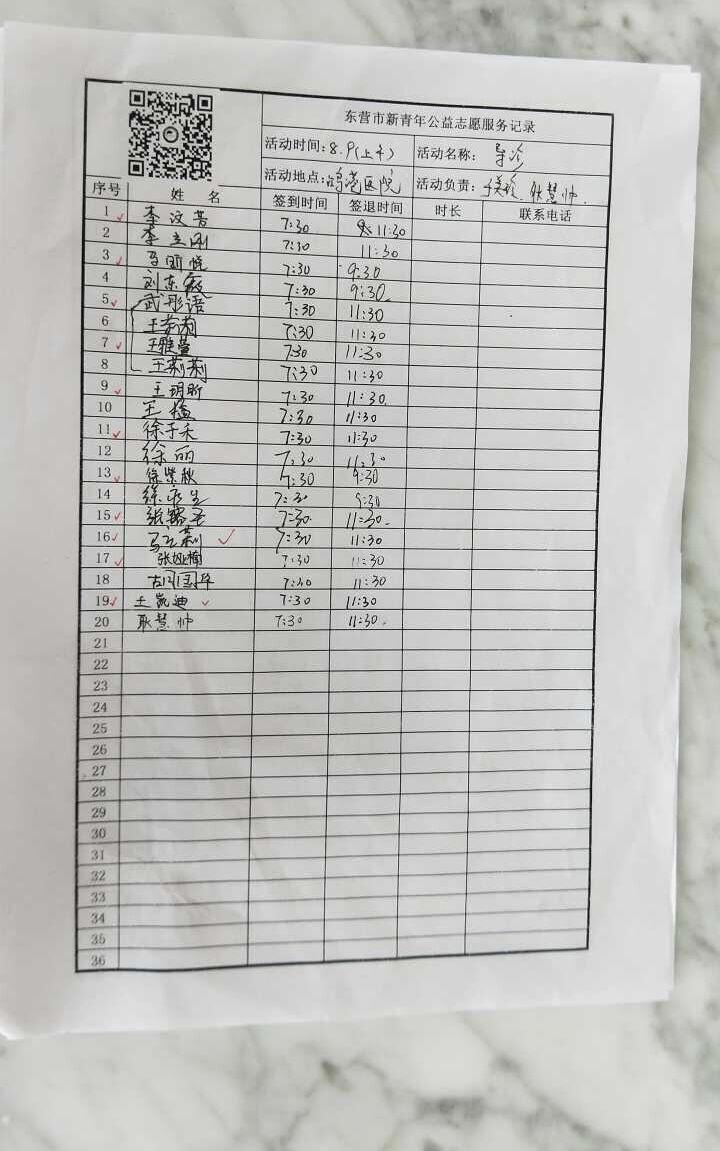 东营市新青年公益志愿服务记录
活动时间:8.9(上午) 活动名称: 导诊
活动地点:鸿港医院 活动负责: 耿慧帅.
序号 姓 名 签到时间 签退时间 时长 联系电话
1 李汶芳 7:30 11:30
2 李立刚 7:30 11:30
3 马玥悦 7:30 9:30
4 刘东霞 7:30 9:30
5 武彤语 7:30 11:30
6 王莉莉 7:30 11:30
7 王雅萱 7:30 11:30
8 王莉莉 7:30 11:30
9 王玥昕 7:30 11:30
10 王 7:30 11:30
11 徐子禾 7:30 11:30
12 徐丽 7:30 11:30
13 徐紫秋 7:30 9:30
14 徐永生 7:30 9:30
15 张 7:30 11:30
16 马 莉 7:30 11:30
17 张 楠 7:30 11:30
18 7:30 11:30
19 王凯迪 7:30 11:30
20 耿慧帅 7:30 11:30
21
22
23
24
25
26
27
28
29
30
31
32
33
34
35
36